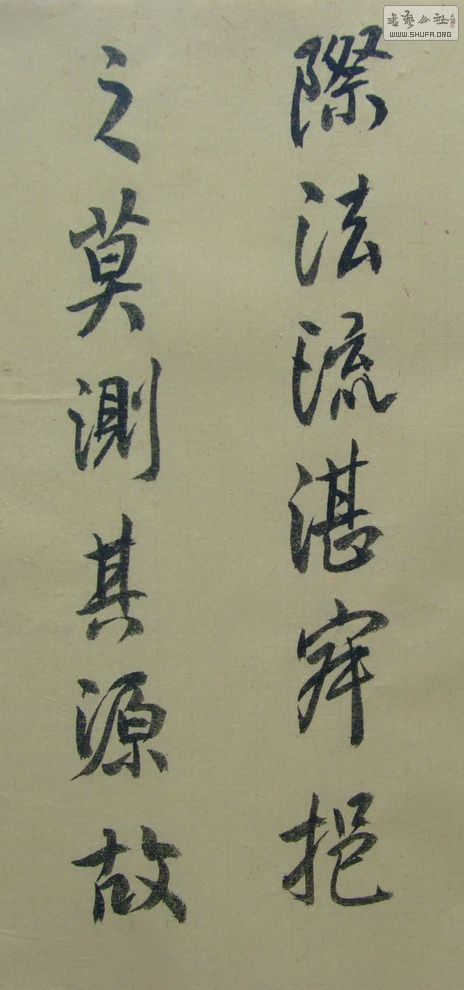 際法流湛寂挹
之莫測其源故
公社
WWW.SHUFA.ORG